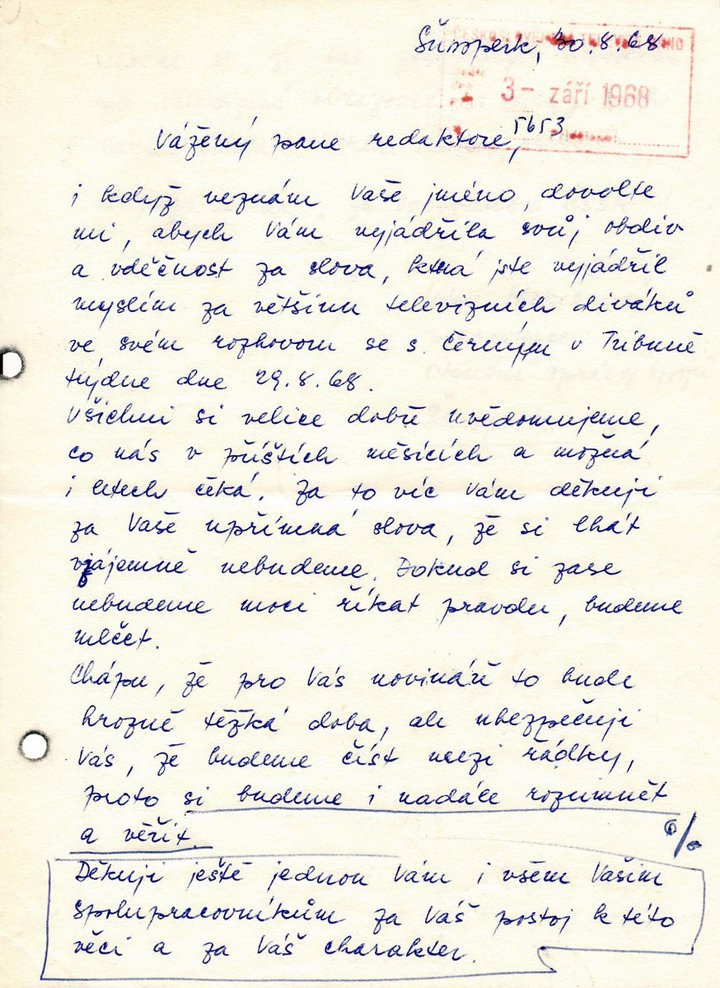 Šumperk, 30.8.68
3- září 1968
5653
Vážený pane redaktore,
i když neznám Vaše jméno, dovolte
mi, abych Vám vyjádřila svůj obdiv
a vděčnost za slova, která jste vyjádřil
myslím za většinu televizních diváků
ve svém rozhovoru se s. Černým v Tribuně
týdne dne 29.8.68.
Všichni si velice dobře uvědomujeme,
co nás v příštích měsících a možná
i letech čeká. Za to víc Vám děkuji
za Vaše upřímná slova, že si lhát
vzájemně nebudeme. Dokud si zase
nebudeme moci říkat pravdu, budeme
mlčet.
Chápu, že pro Vás novináře to bude
hrozně těžká doba, ale ubezpečuji
Vás, že budeme číst mezi řádky,
proto si budeme i nadále rozumnět
a věřit.
Děkuji ještě jednou Vám i všem Vašim
spolupracovníkům za Váš postoj k této
věci a za Váš charakter.